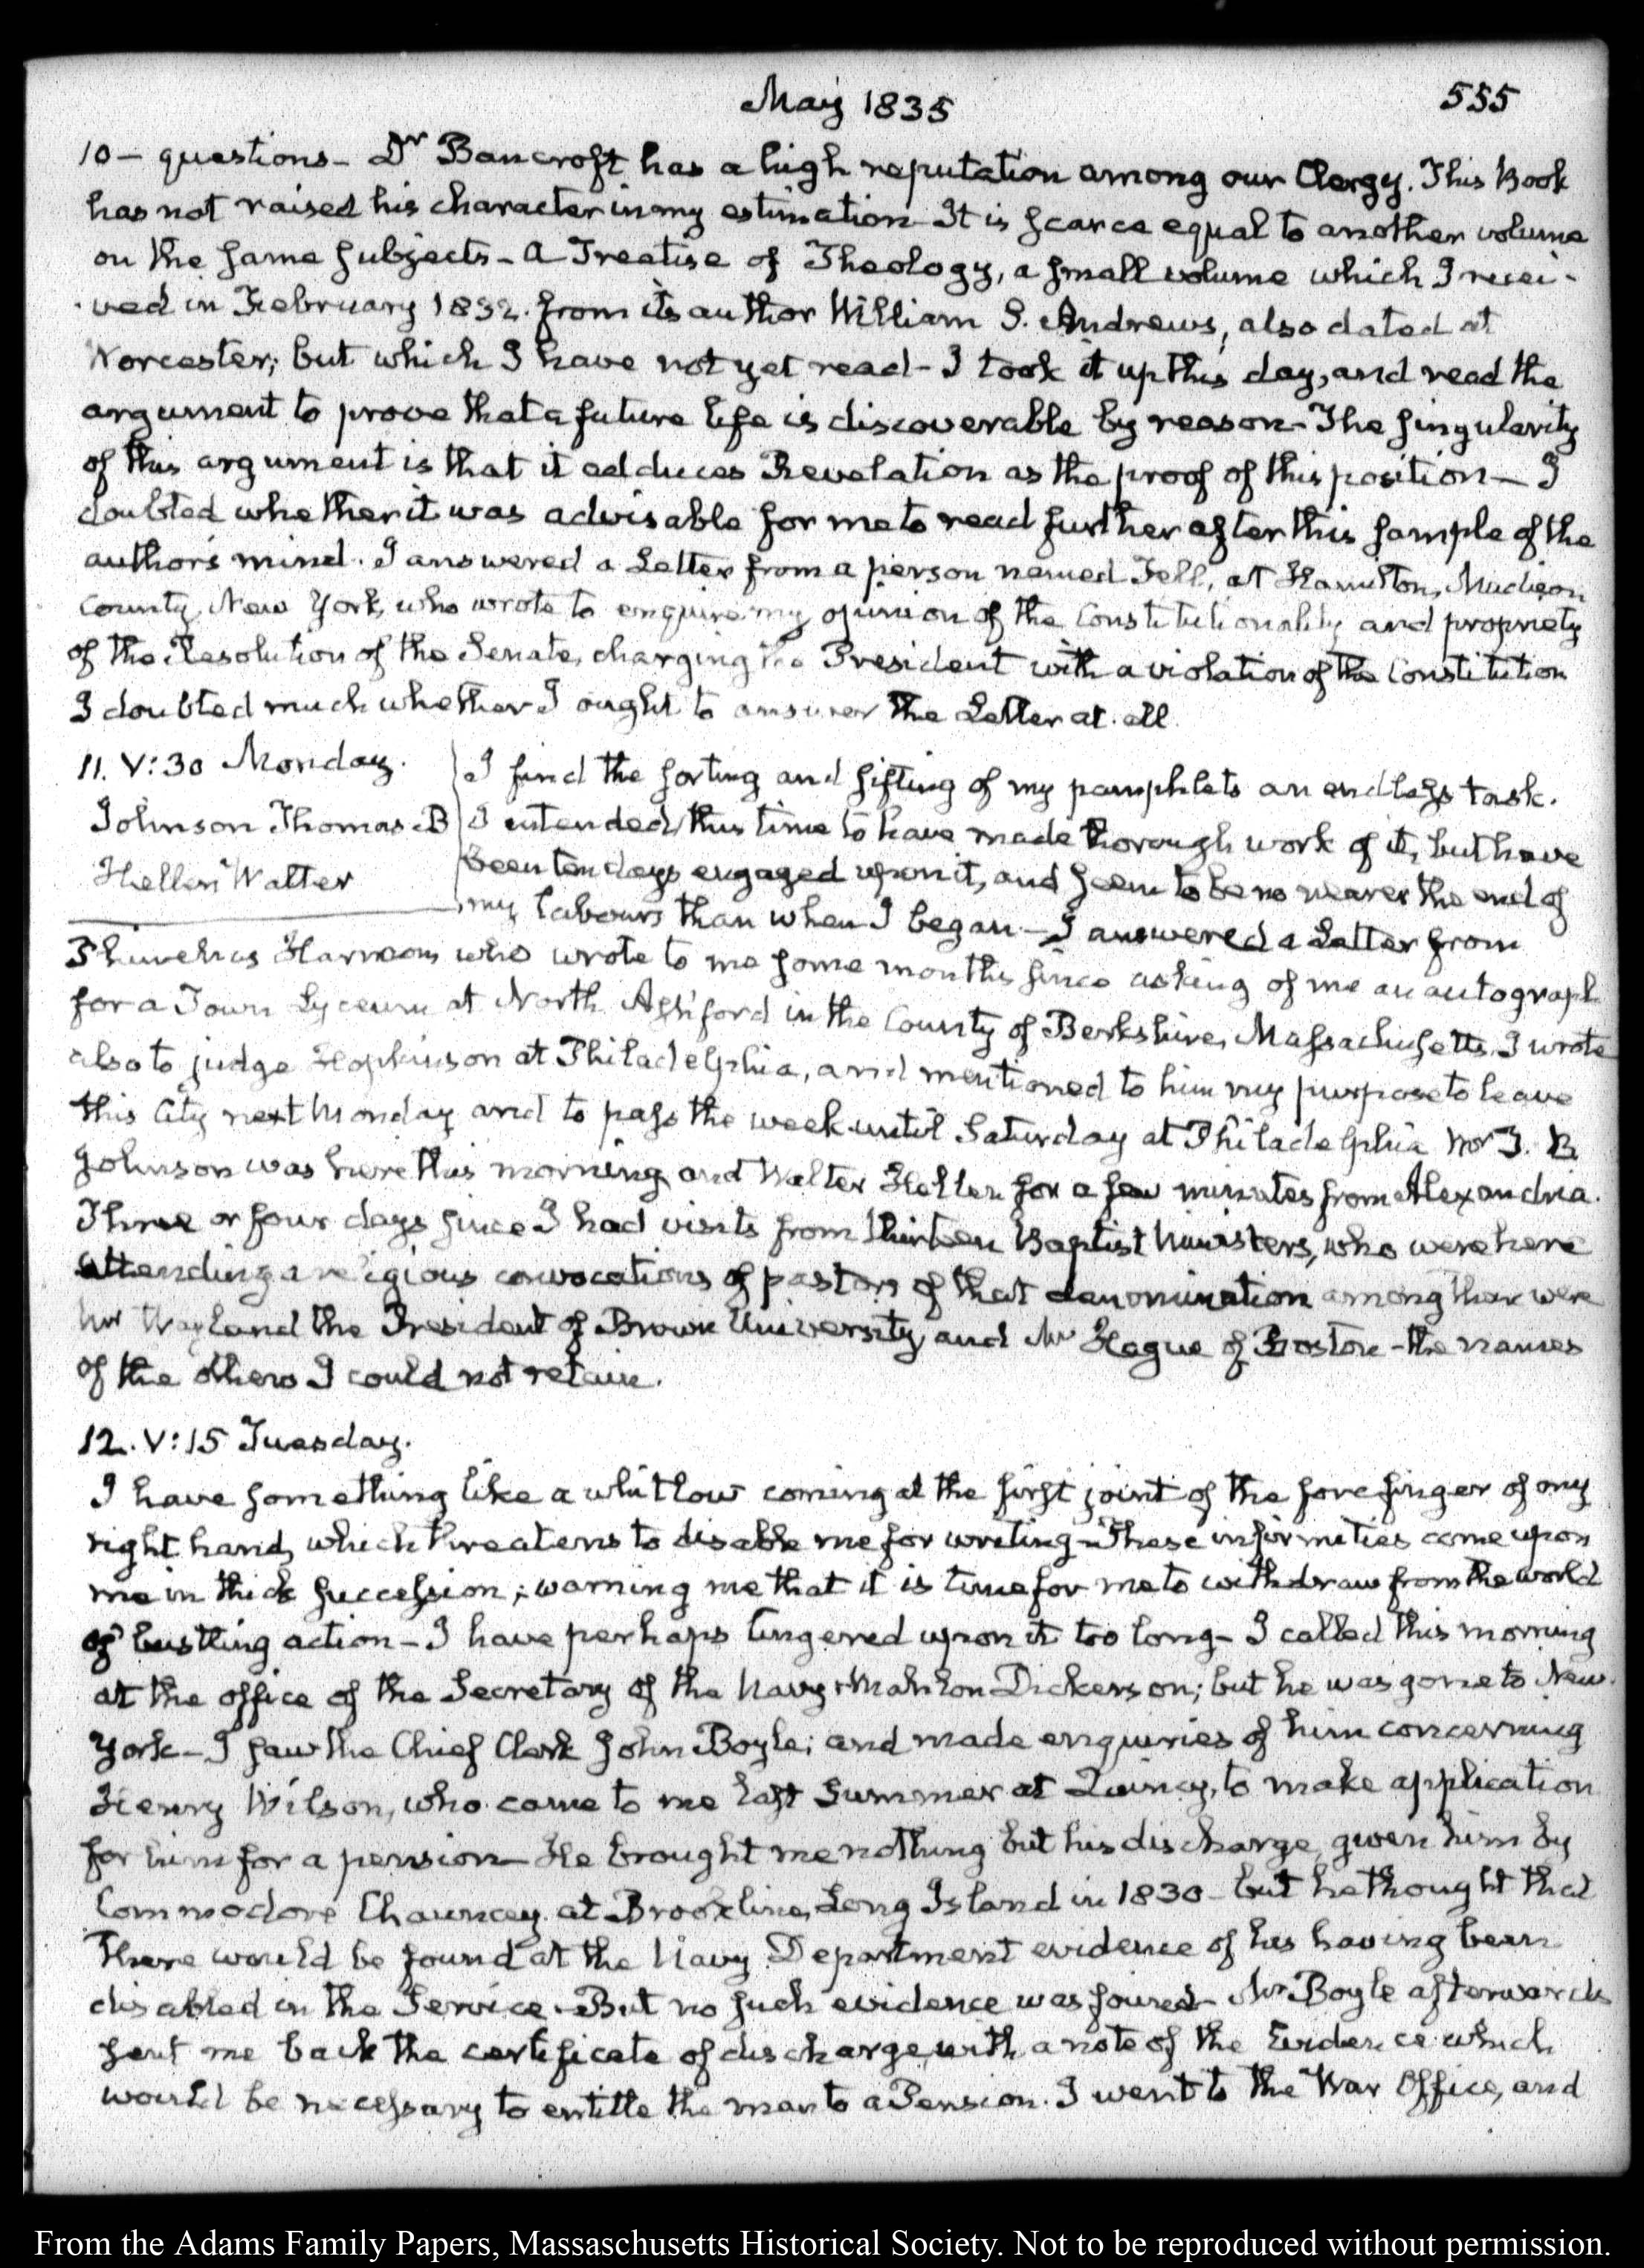 May 1835
555
10 — questions — Dr Bancroft has a high reputation among our Clergy. This Book
has not raised his character in my estimation — It is scarce equal to another volume
on the same subjects — A Treatise of Theology, a small volume which I recei-
ved in February 1832. from its author William S. Andrews, also dated at
Worcester; but which I have not yet read — I took it up this day, and read the
argument to prove that a future life is discoverable by reason — The singularity
of this argument is that it adduces Revelation as the proof of this position — I
doubted whether it was advisable for me to read further after this sample of the
author's mind. I answered a Letter from a person named Fell, at Hamilton, Madison
County, New York, who wrote to enquire my opinion of the Constitutionality and propriety
of the Resolution of the Senate, charging the President with a violation of the Constitution
I doubted much whether I ought to answer the Letter at all.
11. V:30 Monday.
Johnson Thomas. B
Hellen Walter
I find the sorting and sifting of my pamphlets an endless task.
I intended this time to have made thorough work of it, but have
been ten days engaged upon it, and seem to be no nearer the end of
my labours than when I began — I answered a Letter from
Phinehas Harmon who wrote to me some months since asking of me an autograph
for a Town Lyceum at North Ashford in the County of Berkshire, Massachusetts. I wrote
also to judge Hopkinson at Philadelphia, and mentioned to him my purpose to leave
this City next Monday and to pass the week until Saturday at Philadelphia Mr T. B.
Johnson was here this morning and Walter Hellen for a few minutes from Alexandria.
Three or four days since I had visits from thirteen Baptist Ministers, who were here
attending a religious convocations of pastors of that denomination among them were
Mr Wayland the President of Brown University, and Mr Hague of Boston — the names
of the others I could not retain.
12. V:15 Tuesday.
I have something like a whitlow coming at the first joint of the forefinger of my
right hand, which threatens to disable me for writing — These infirmities come upon
me in thick succession; warning me that it is time for me to withdraw from the world
of bustling action — I have perhaps lingered upon it too long — I called this morning
at the office of the Secretary of the Navy Mahlon Dickerson; but he was gone to New-
York — I saw the Chief Clerk John Boyle; and made enquiries of him concerning
Henry Wilson, who came to me last Summer at Quincy, to make application
for him for a pension — He brought me nothing but his discharge, given him by
Commodore Chauncey at Brookline, Long Island in 1830 — but he thought that
there would be found at the Navy Department evidence of his having been
disabled in the Service. But no such evidence was found — Mr Boyle afterwards
sent me back the certificate of discharge, with a note of the Evidence which
would be necessary to entitle the man to a Pension. I went to the War Office, and
From the Adams Family Papers, Massaschusetts Historical Society. Not to be reproduced without permission.